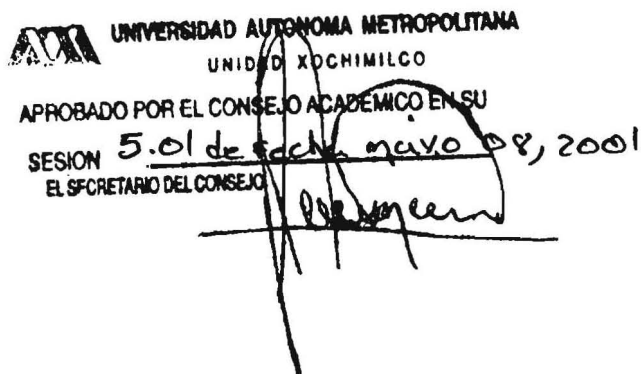 UNIVERSIDAD AUTONOMA METROPOLITANA
UNIDAD XOCHIMILCO
APROBADO POR EL CONSEJO ACADEMICO EN SU
SESION 5.01 de fecha mayo 08, 2001
EL SECRETARIO DEL CONSEJO